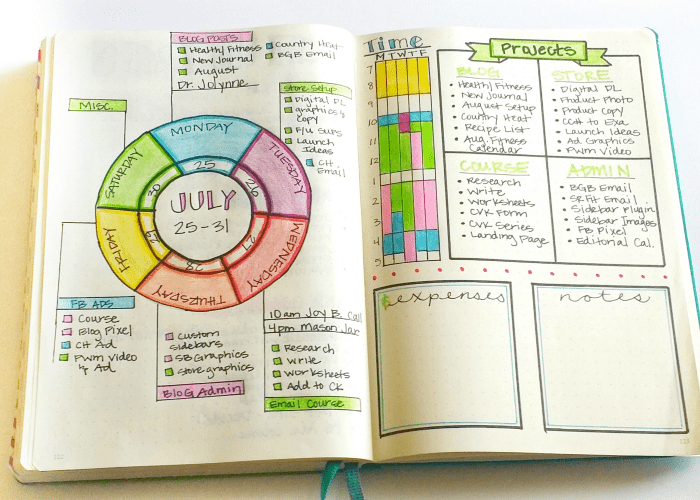 BLOG POSTS
Healthy Fitness
New Journal
August
Dr. Jolynne
Country Heat
BGB Email
Store Setup
Digital DL
graphics &
Copy
F/U Sups
Launch
Ideas
CH
Email
MISC.
MONDAY
25
TUESDAY
26
WEDNESDAY
27
THURSDAY
28
FRIDAY
29
SATURDAY
30
JULY
25-31
FB ADS
Course
Blog Pixel
CH Ad
PWM Video
& Ad
Custom
sidebars
SB Graphics
Store graphics
Blog Admin
10am Joy B. Call
4pm Mason Jar
Research
Write
Worksheets
Add to CK
Email Course
Time
M T W T F
7
8
9
10
11
12
1
2
3
4
5
Projects
BLOG
Healthy Fitness
New Journal
August Setup
Country Heat
Recipe List
Aug. Fitness
Calendar
STORE
Digital DL
Product Photo
Product Copy
CCH to Exa
Launch Ideas
Ad Graphics
PWM Video
COURSE
Research
Write
Worksheets
CVK Form
CVK Series
Landing Page
ADMIN
BGB Email
SR Fit Email
Sidebar Plugin
Sidebar Images
FB Pixel
Editorial Cal.
$expenses
notes